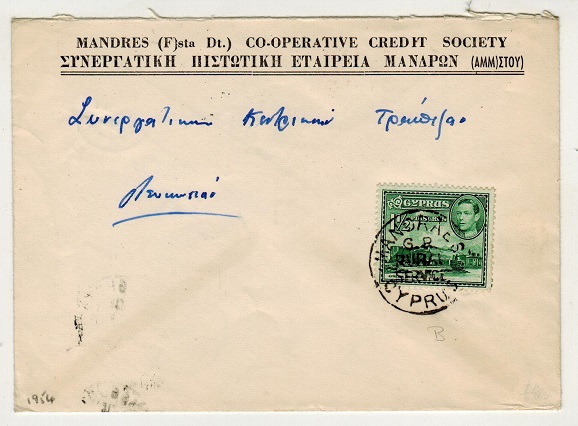 MANDRES (F)sta Dt.) CO-OPERATIVE CREDIT SOCIETY
ΣΥΝΕΡΓΑΤΙΚΗ ΠΙΣΤΩΤΙΚΗ ΕΤΑΙΡΕΙΑ ΜΑΝΔΡΩΝ (ΑΜΜ)ΣΤΟΥ)
Συνεργατικήν Κεντρικήν Τράπεζαν
Λευκωσίαν
CYPRUS
MANDRAES
G.R.
RURAL
SERVICE
CYPRUS
B
1954